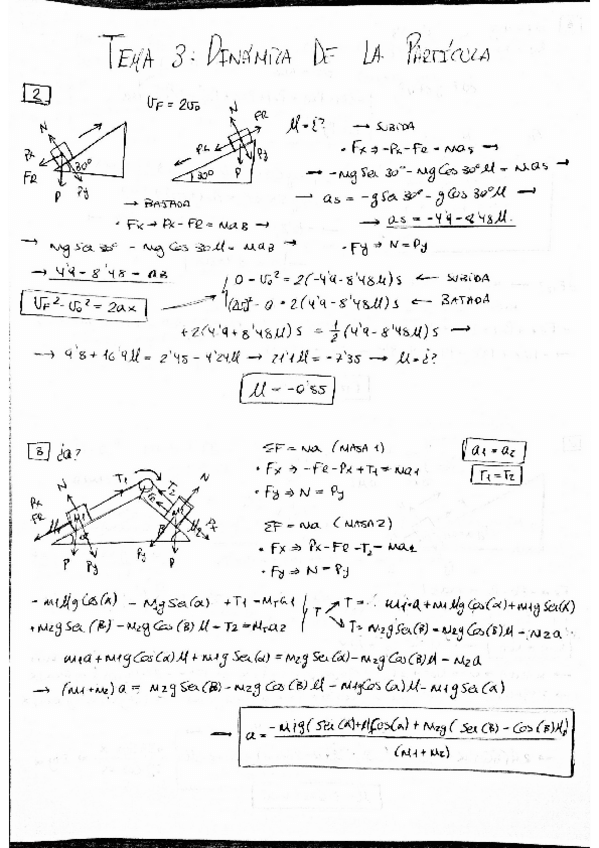 TEMA 3: DINÁMICA DE LA PARTÍCULA
2
VF = 2v0
M=¿?
→ SUBIDA
• Fx → -Px - FR = mas →
→ -mg Sen 30° - mg Cos 30° M = mas →
→ as = -g Sen 30° - g Cos 30° M →
→ as = -4'9 - 8'48M.
• Fy ⇒ N = Py
N
Px
FR
30°
P
Py
N
FR
Px
Py
30°
P
→ BAJADA
• Fx → Px - FR = maB →
→ mg Sen 30° - mg Cos 30 M = maB →
→ 4'9 - 8'48 = aB
VF² - v0² = 2ax
0 - v0² = 2(-4'9 - 8'48M)s ← SUBIDA
- 0 = 2(4'9 - 8'48M)s ← BAJADA
+2(4'9 + 8'48M)s = 1/2 (4'9 - 8'48M)s →
→ 9'8 + 16'9M = 2'45 - 4'24M → 21'1M = -7'35 → M=¿?
M = -0'35
3 ¿a?
ΣF = ma (MASA 1)
• Fx → -FR - Px + T1 = ma1
• Fy ⇒ N = Py
a1 = a2
T1 = T2
ΣF = ma (MASA 2)
• Fx ⇒ Px - FR - T2 = ma2
• Fy ⇒ N = Py
N
T1
T2
N
Px
FR
M1
α
P
Py
Py
β
P
M2
- m1Mg Cos(α) - M1g Sen(α) + T1 = M1a1
+ m2g Sen(β) - m2g Cos(β)M - T2 = M2a2
T
T = m1·a + m1Mg Cos(α) + m1g Sen(α)
T = m2g Sen(β) - m2g Cos(β)M - m2a
m1a + m1g Cos(α)M + m1g Sen(α) = m2g Sen(α) - m2g Cos(β)M - m2a
→ (m1+m2)a = m2g Sen(β) - m2g Cos(β)M - m1g Cos(α)M - m1g Sen(α)
→ a = -m1g(Sen(α)+M Cos(α) + m2g(Sen(β) - Cos(β)M)
(m1+m2)